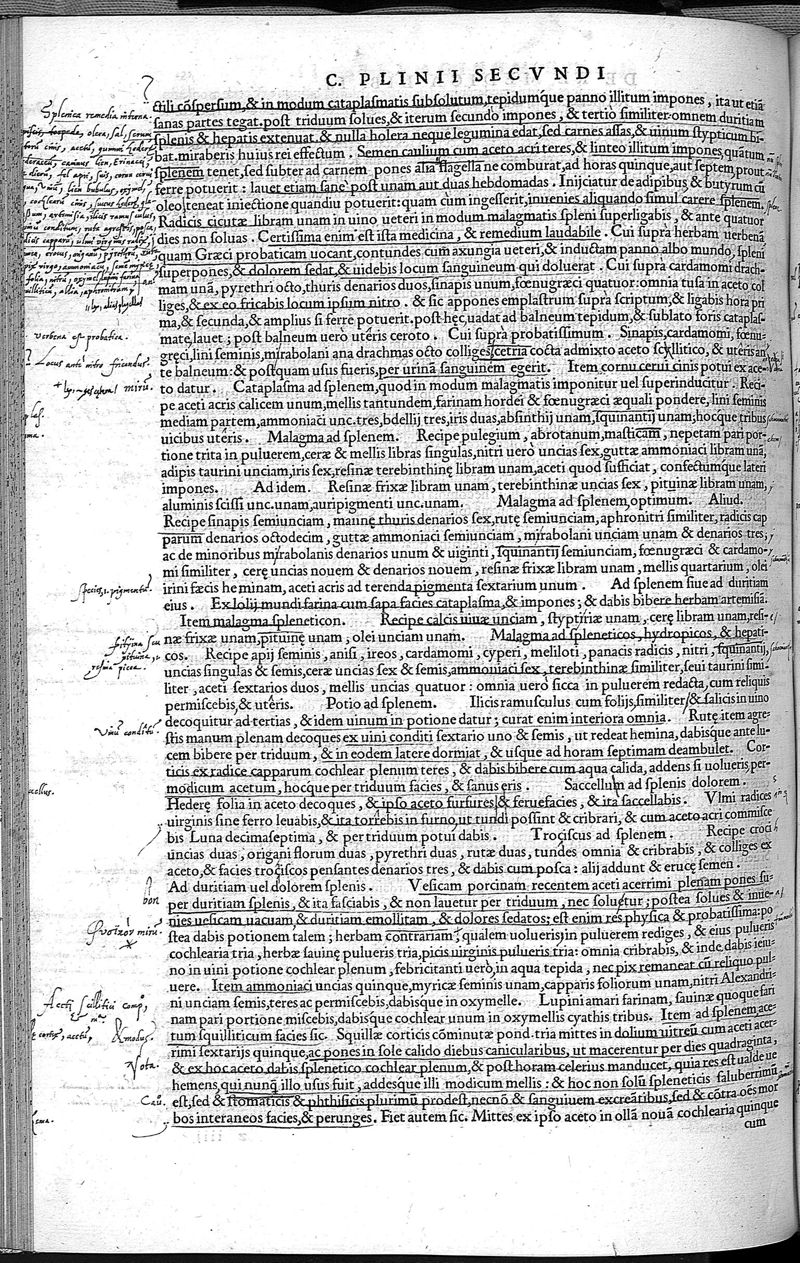 C. PLINII SECVNDI
ctili cõspersum,& in modum cataplasmatis subsolutum,tepidumq́ue panno illitum impones, ita ut etiã
sanas partes tegat.post triduum solues,& iterum secundo impones, & tertio similiter.omnem duritiam
splenis & hepatis extenuat.& nulla holera neque legumina edat,sed carnes assas,& uinum stypticum bi-
bat.miraberis huius rei effectum. Semen caulium cum aceto acri teres,& linteo illitum impones,quatum
splenem tenet,sed subter ad carnem pones alia flagella ne comburat,ad horas quinque,aut septem,prout
ferre potuerit: lauet etiam sane post unam aut duas hebdomadas. Inijciatur de adipibus & butyrum cũ
oleo,teneat iniectione quandiu potuerit:quam cum ingesserit,inuenies aliquando simul carere splenem.
Radicis cicutæ libram unam in uino ueteri in modum malagmatis spleni superligabis, & ante quatuor
dies non soluas. Certissima enim est ista medicina, & remedium laudabile. Cui supra herbam uerbenã
quam Græci probaticam uocant,contundes cum axungia ueteri,& inductam panno albo mundo, spleni
superpones,& dolorem sedat,& uidebis locum sanguineum qui doluerat. Cui supra cardamomi drach-
mam unã, pyrethri octo,thuris denarios duos,sinapis unum,fœnugræci quatuor:omnia tusa in aceto col
liges,& ex eo fricabis locum ipsum nitro. & sic appones emplastrum supra scriptum,& ligabis hora pri
ma,& secunda,& amplius si ferre potuerit.post hęc,uadat ad balneum tepidum,& sublato foris cataplas-
mate,lauet; post balneum uero utêris ceroto. Cui supra probatissimum. Sinapis,cardamomi, fœnu-
gręci,lini seminis,mirabolani ana drachmas octo colliges,cetria cocta admixto aceto scyllitico, & uteris an
te balneum:& postquam usus fueris,per urinã sanguinem egerit. Item cornu cerui cinis potui ex ace-
to datur. Cataplasma ad splenem,quod in modum malagmatis imponitur uel superinducitur. Reci-
pe aceti acris calicem unum,mellis tantundem,farinam hordei & fœnugræci æquali pondere, lini seminis
mediam partem,ammoniaci unc.tres,bdellij tres,iris duas,absinthij unam,squinantij unam;hocque tribus
uicibus utêris. Malagma ad splenem. Recipe pulegium, abrotanum,masticam, nepetam pari por-
tione trita in puluerem,ceræ & mellis libras singulas,nitri uero uncias sex,guttæ ammoniaci libram unã,
adipis taurini unciam,iris sex,resinæ terebinthinę libram unam,aceti quod sufficiat, confectumq́ue lateri
impones. Ad idem. Resinæ frixæ libram unam,terebinthinæ uncias sex, pituinæ libram unam,
aluminis scissi unc.unam,auripigmenti unc.unam. Malagma ad splenem,optimum. Aliud.
Recipe sinapis semiunciam, mannę thuris denarios sex,rutę semiunciam,aphronitri similiter,radicis cap
parum denarios octodecim, guttæ ammoniaci semiunciam, mirabolani unciam unam & denarios tres,
ac de minoribus mirabolanis denarios unum & uiginti,squinantij semiunciam,fœnugræci & cardamo-
mi similiter, cerę uncias nouem & denarios nouem,resinæ frixæ libram unam,mellis quartarium,olei
irini fæcis heminam,aceti acris ad terenda pigmenta sextarium unum. Ad splenem siue ad duritiam
eius. Ex lolij mundi farina cum sapa facies cataplasma,& impones; & dabis bibere herbam artemisiã.
Item malagma spleneticon. Recipe calcis uiuæ unciam, styptiriæ unam, cerę libram unam,resi-
næ frixæ unam,pituinę unam, olei unciam unam. Malagma ad spleneticos,hydropicos,& hepati-
cos. Recipe apij seminis, anisi, ireos, cardamomi, cyperi, meliloti, panacis radicis, nitri, squinantij,
uncias singulas & semis,ceræ uncias sex & semis,ammoniaci sex,terebinthinæ similiter,seui taurini simi-
liter, aceti sextarios duos, mellis uncias quatuor: omnia uero sicca in puluerem redacta,cum reliquis
permiscebis,& utêris. Potio ad splenem. Ilicis ramusculus cum folijs,similiter & salicis in uino
decoquitur ad tertias, & idem uinum in potione datur; curat enim interiora omnia. Rutę item agre-
stis manum plenam decoques ex uini conditi sextario uno & semis, ut redeat hemina,dabisque ante lu-
cem bibere per triduum, & in eodem latere dormiat, & usque ad horam septimam deambulet. Cor-
ticis ex radice capparum cochlear plenum teres, & dabis bibere cum aqua calida, addens si uolueris,per-
modicum acetum, hocque per triduum facies, & sanus eris. Saccellum ad splenis dolorem.
Hederę folia in aceto decoques, & ipso aceto furfures & feruefacies, & ita saccellabis. Vlmi radices
uirginis sine ferro leuabis,& ita torrebis in furno,ut tundi possint & cribrari, & cum aceto acri commisce
bis Luna decimaseptima, & per triduum potui dabis. Trociscus ad splenem. Recipe croci
uncias duas, origani florum duas, pyrethri duas, rutæ duas, tundes omnia & cribrabis, & colliges ex
aceto,& facies trociscos pensantes denarios tres, & dabis cum posca: alij addunt & erucę semen.
Ad duritiam uel dolorem splenis. Vesicam porcinam recentem aceti acerrimi plenam pones su-
per duritiam splenis,& ita fasciabis, & non lauetur per triduum, nec soluetur; postea solues & inue-
nies uesicam uacuam,& duritiam emollitam, & dolores sedatos; est enim res physica & probatissima:po
stea dabis potionem talem; herbam contrariam,qualem uolueris,in puluerem rediges, & eius pulueris
cochlearia tria, herbæ sauinę pulueris tria,picis uirginis pulueris tria: omnia cribrabis,& inde dabis ieiu-
no in uini potione cochlear plenum, febricitanti uero,in aqua tepida, nec pix remaneat cũ reliquo pul-
uere. Item ammoniaci uncias quinque,myricæ seminis unam,capparis foliorum unam,nitri Alexandri-
ni unciam semis,teres ac permiscebis,dabisque in oxymelle. Lupini amari farinam, sauinæ quoque fari
nam pari portione miscebis,dabisque cochlear unum in oxymellis cyathis tribus. Item ad splenem,ace-
tum squilliticum facies sic. Squillæ corticis cõminutæ pond.tria mittes in dolium uitreũ cum aceti acer-
rimi sextarijs quinque,ac pones in sole calido diebus canicularibus, ut macerentur per dies quadraginta,
& ex hoc aceto dabis splenetico cochlear plenum,& post horam celerius manducet, quia res est ualde ue
hemens,qui nunq̃ illo usus fuit, addesque illi modicum mellis: & hoc non solũ spleneticis saluberrimũ
est,sed & stomaticis & phthisicis plurimũ prodest,necnõ & sanguiuem excreãtibus,sed & cõtra oẽs mor
bos interaneos facies,& perunges. Fiet autem sic. Mittes ex ipso aceto in ollã nouã cochlearia quinque
cum
Splenica remedia interna.
verbena est probatica.
Locus ante nitro fricandus
Nota.